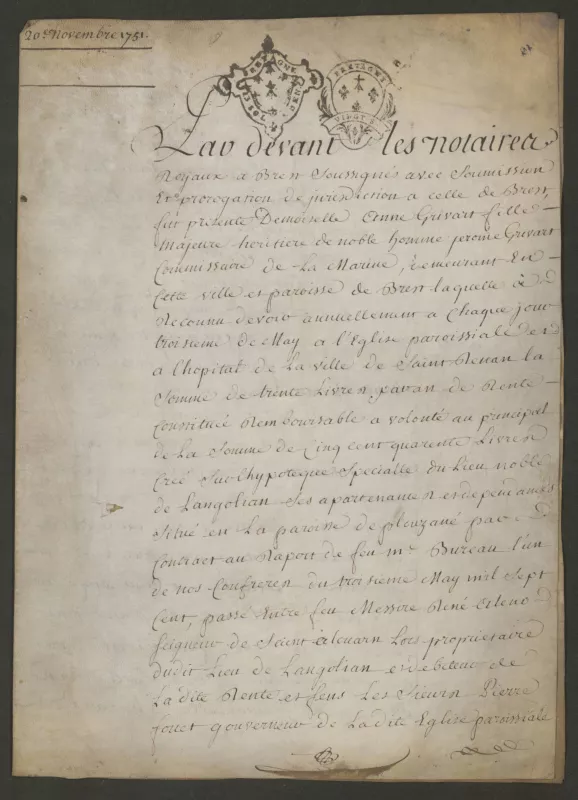 20e. Novembre 1751.
BRETAGNE
BRETAGNE
Par devant les notaires
Royaux a Brest Soussignés avec Soumission
Et prorogation de jurisdiction a celle de Brest
fut presente Demoiselle Anne Grivart fille
Majeure heritiere de noble homme jerome Grivart
Commissaire de La Marine, demeurant En
Cette ville et paroisse de Brest laquelle a
Reconnu devoir annuellement a Chaque jour
troisieme de May a l'Eglise paroissiale et
a l'hopital de La ville de Saint Renan la
Somme de trente Livres par an de Rente
Constitué Remboursable a volonté au principal
de La Somme de Cinq cent quarente Livres
Créé Sur l'hypoteque Specialle du Lieu noble
de Langolian Ses apartenances et dependances
Situé en La paroisse de plouzané par
Contract au Raport de feu me. Bureau l'un
de nos Confreres du troisieme May mil Sept
Cent, passé Entre feu Messire René
Seigneur de Saint Lors proprietaire
dudit Lieu de Langolian et debiteur de
La dite Rente et feus Les Sieurs Pierre
gouverneur de La dite Eglise paroissiale